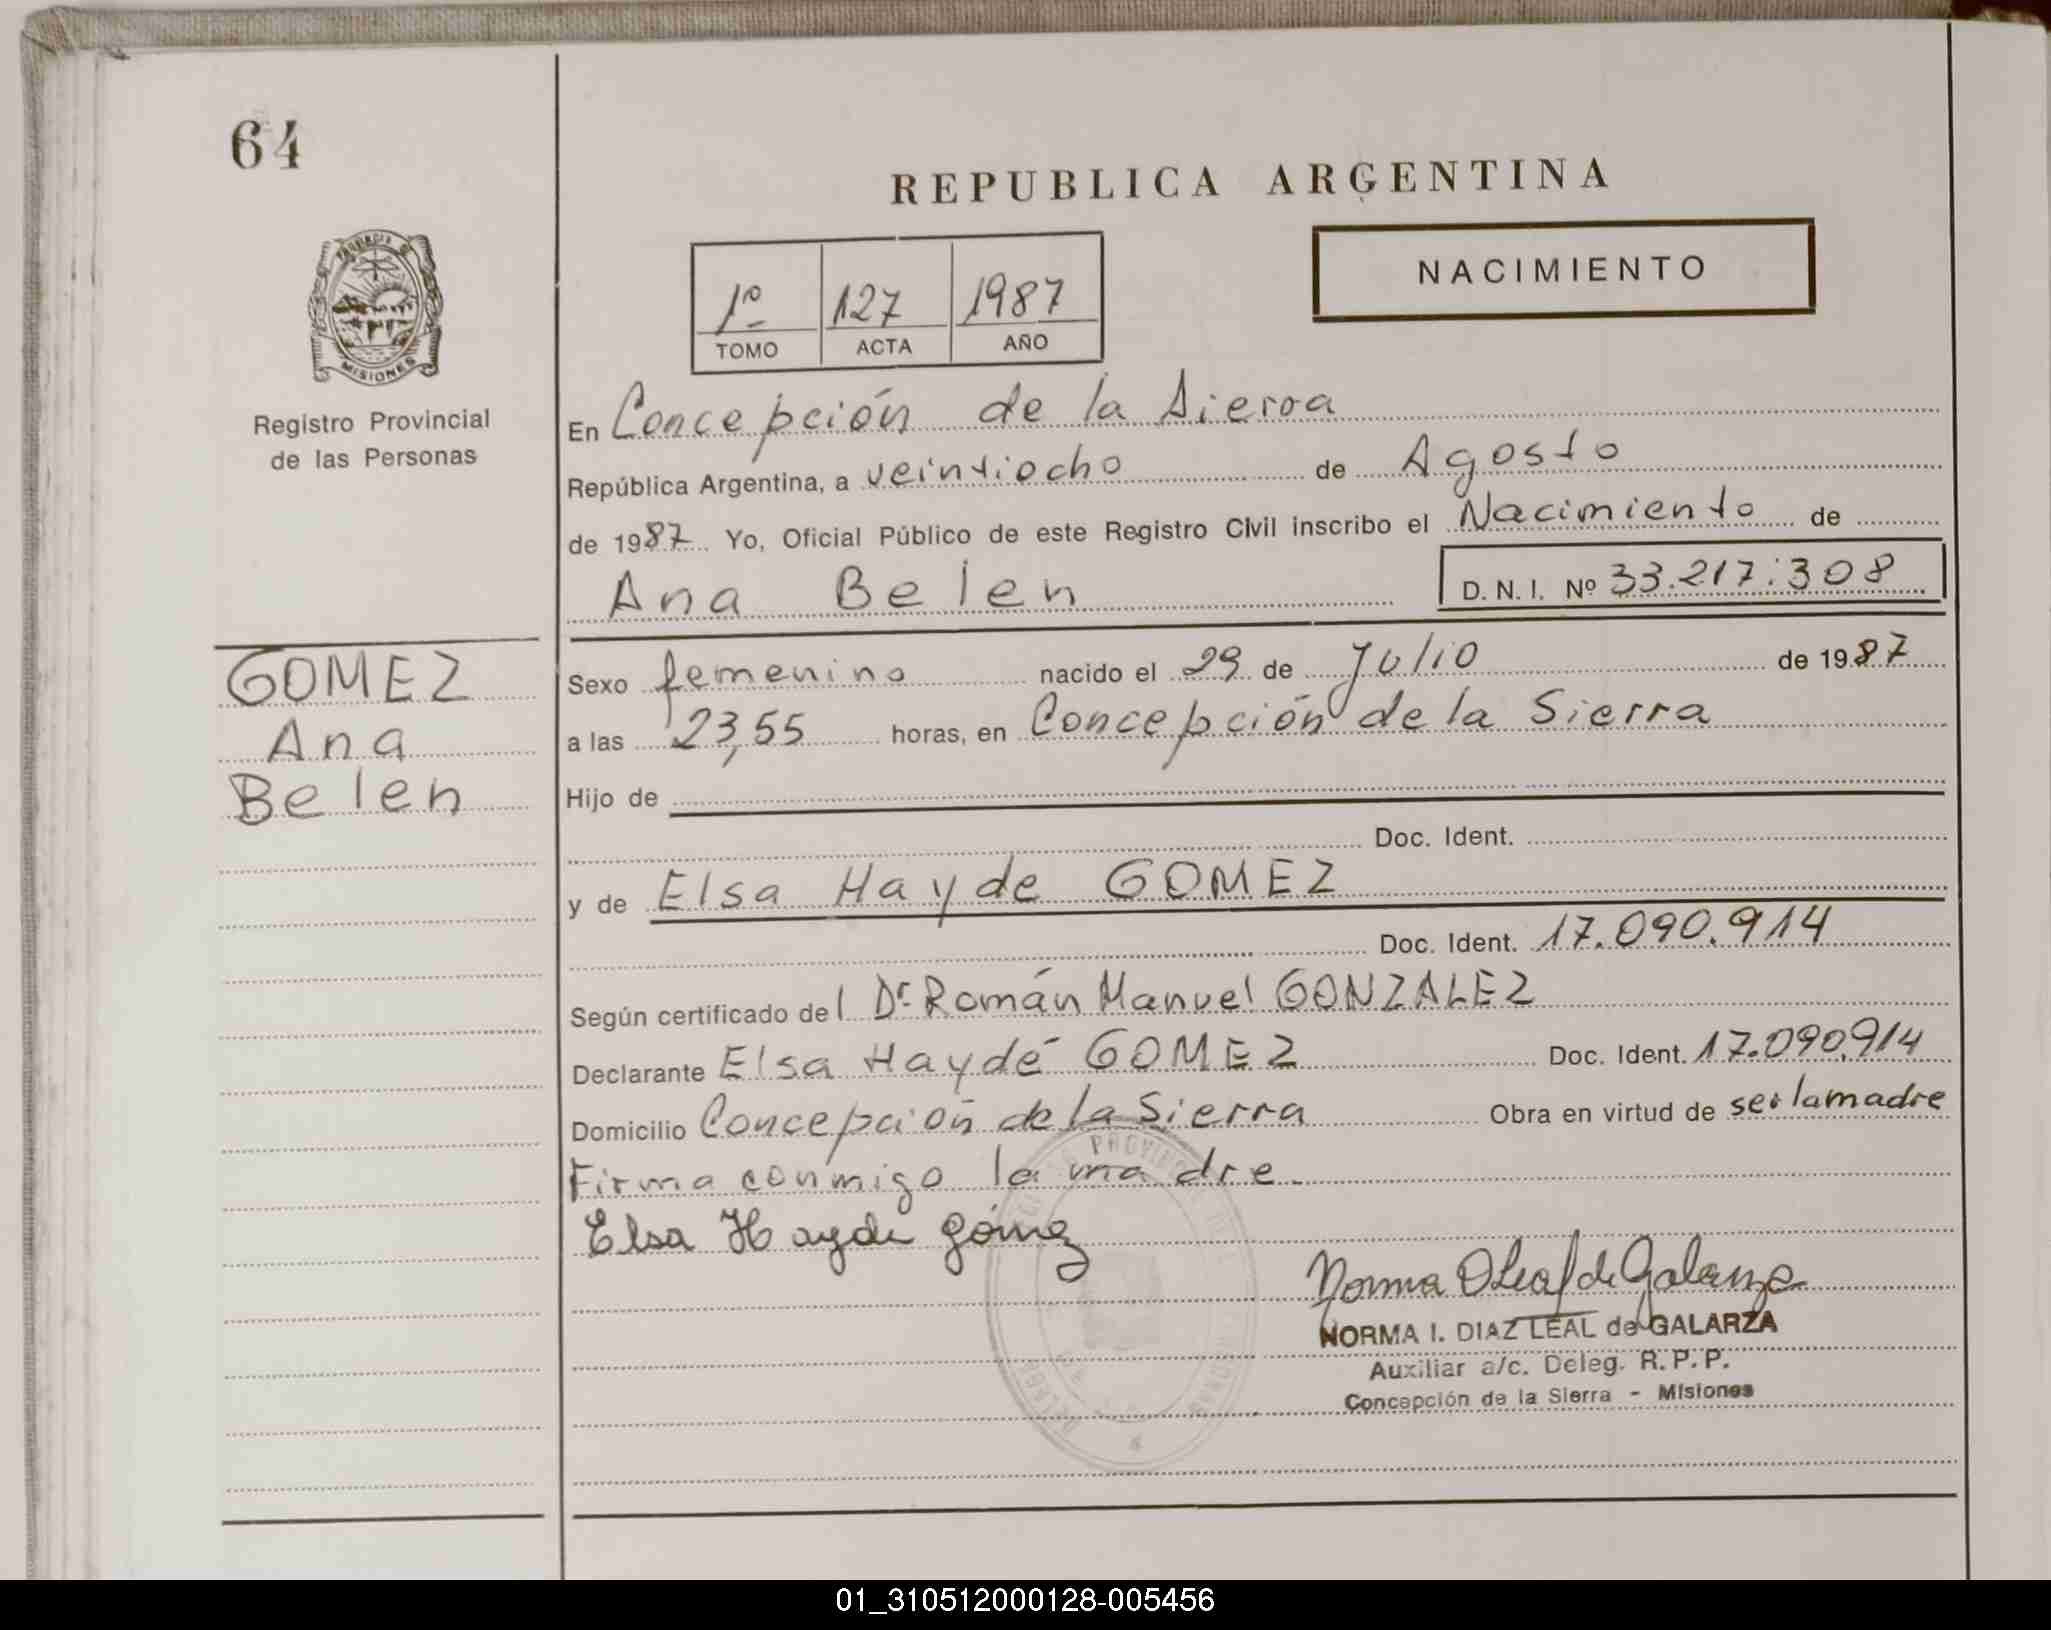 64
REPUBLICA ARGENTINA
NACIMIENTO
1º 127 1987
TOMO ACTA AÑO
PROVINCIA DE
MISIONES
Registro Provincial
de las Personas
En Concepción de la Sierra
República Argentina, a veintiocho de Agosto
de 1987 Yo, Oficial Público de este Registro Civil inscribo el Nacimiento de
Ana Belen D.N.I. Nº 33.217.308
GOMEZ
Ana
Belen
Sexo femenino nacido el 29 de Julio de 1987
a las 23,55 horas, en Concepción de la Sierra
Hijo de
Doc. Ident.
y de Elsa Hayde GOMEZ
Doc. Ident. 17.090.914
Según certificado del Dr. Román Manuel GONZALEZ
Declarante Elsa Haydé GOMEZ Doc. Ident. 17.090.914
Domicilio Concepción de la Sierra Obra en virtud de ser la madre
Firma conmigo la madre.
Elsa Hayde Gómez
NORMA I. DIAZ LEAL de GALARZA
Auxiliar a/c. Deleg. R.P.P.
Concepción de la Sierra - Misiones
01_310512000128-005456